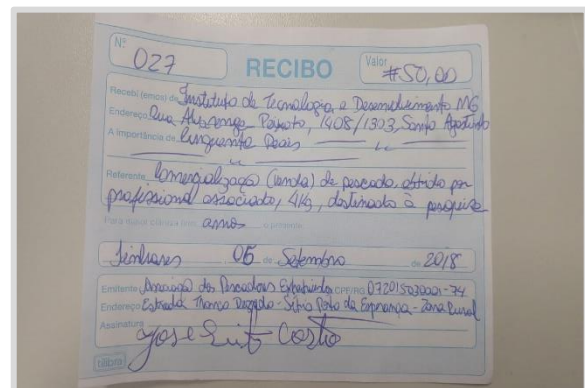 Nº 027 RECIBO Valor #50,00
Recebi (emos) de Instituto de Tecnologia e Desenvolvimento MG
Endereço Rua Alvarenga Peixoto, 1408/1303, Santo Agostinho
A importância de Cinquenta Reais
Referente Comercialização (venda) de pescado obtido por
profissional associado, 4Kg, destinado à pesquisa
Para maior clareza firm amos o presente
Linhares 05 de Setembro de 2018
Emitente Associação dos Pescadores CPF/RG
Endereço Estrada Thomaz - Sítio Porto da Esperança - Zona Rural
Assinatura José Luiz Costa
tilibra